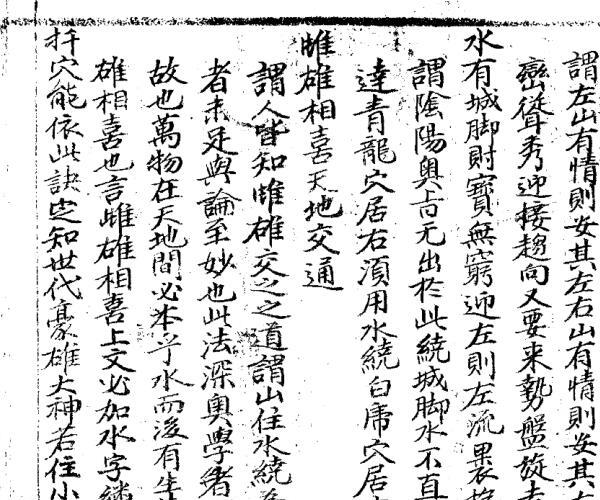 謂左山有情則安其左右山有情則安其右
巒聳秀迎接趨向又要來勢盤旋
水有城脚財寶無窮迎左則左流畏
謂陰陽奥旨无出於此繞城脚水不直
逹青龍穴居右須用水繞白虎穴居
雌雄相喜天地交通
謂人皆知雌雄交之之道謂山住水繞
者未足與論至妙也此法深奥學者
故也萬物在天地間必本乎水而後有生
雄相喜也言雌雄相喜上文必加水字
扦穴能依此訣定知世代豪雄大神若住小